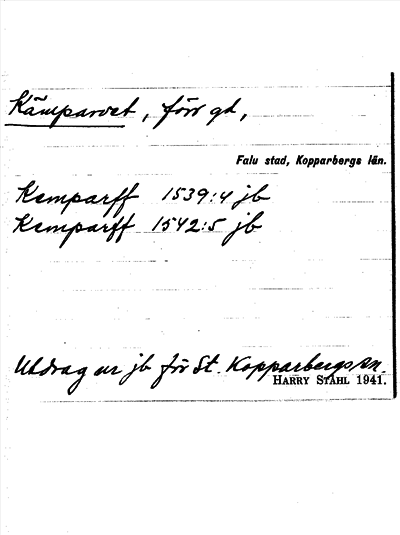 Kämparvet, förr gd,
Falu stad, Kopparbergs län.
Kemparff 1539:4 jb
Kemparff 1542:5 jb
Utdrag ur jb för St. Kopparbergs sn.
HARRY STÅHL 1941.